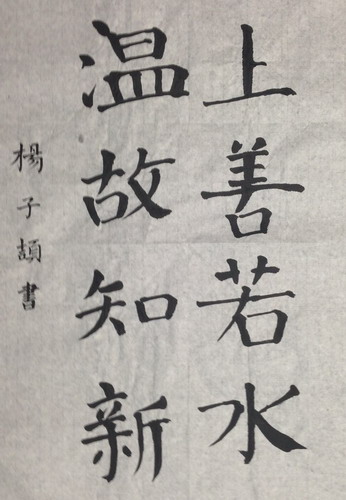 上善若水
温故知新
楊子頡書